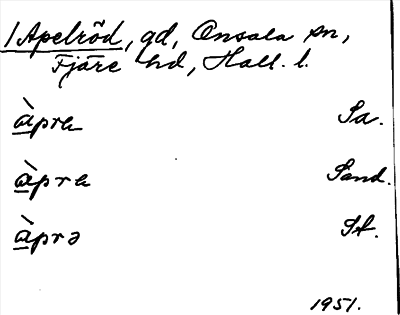 1 Apelröd, gd, Onsala sn,
Fjäre hd, Hall. l.
àpra Sa.
àpra Sand.
àprə St.
1951.